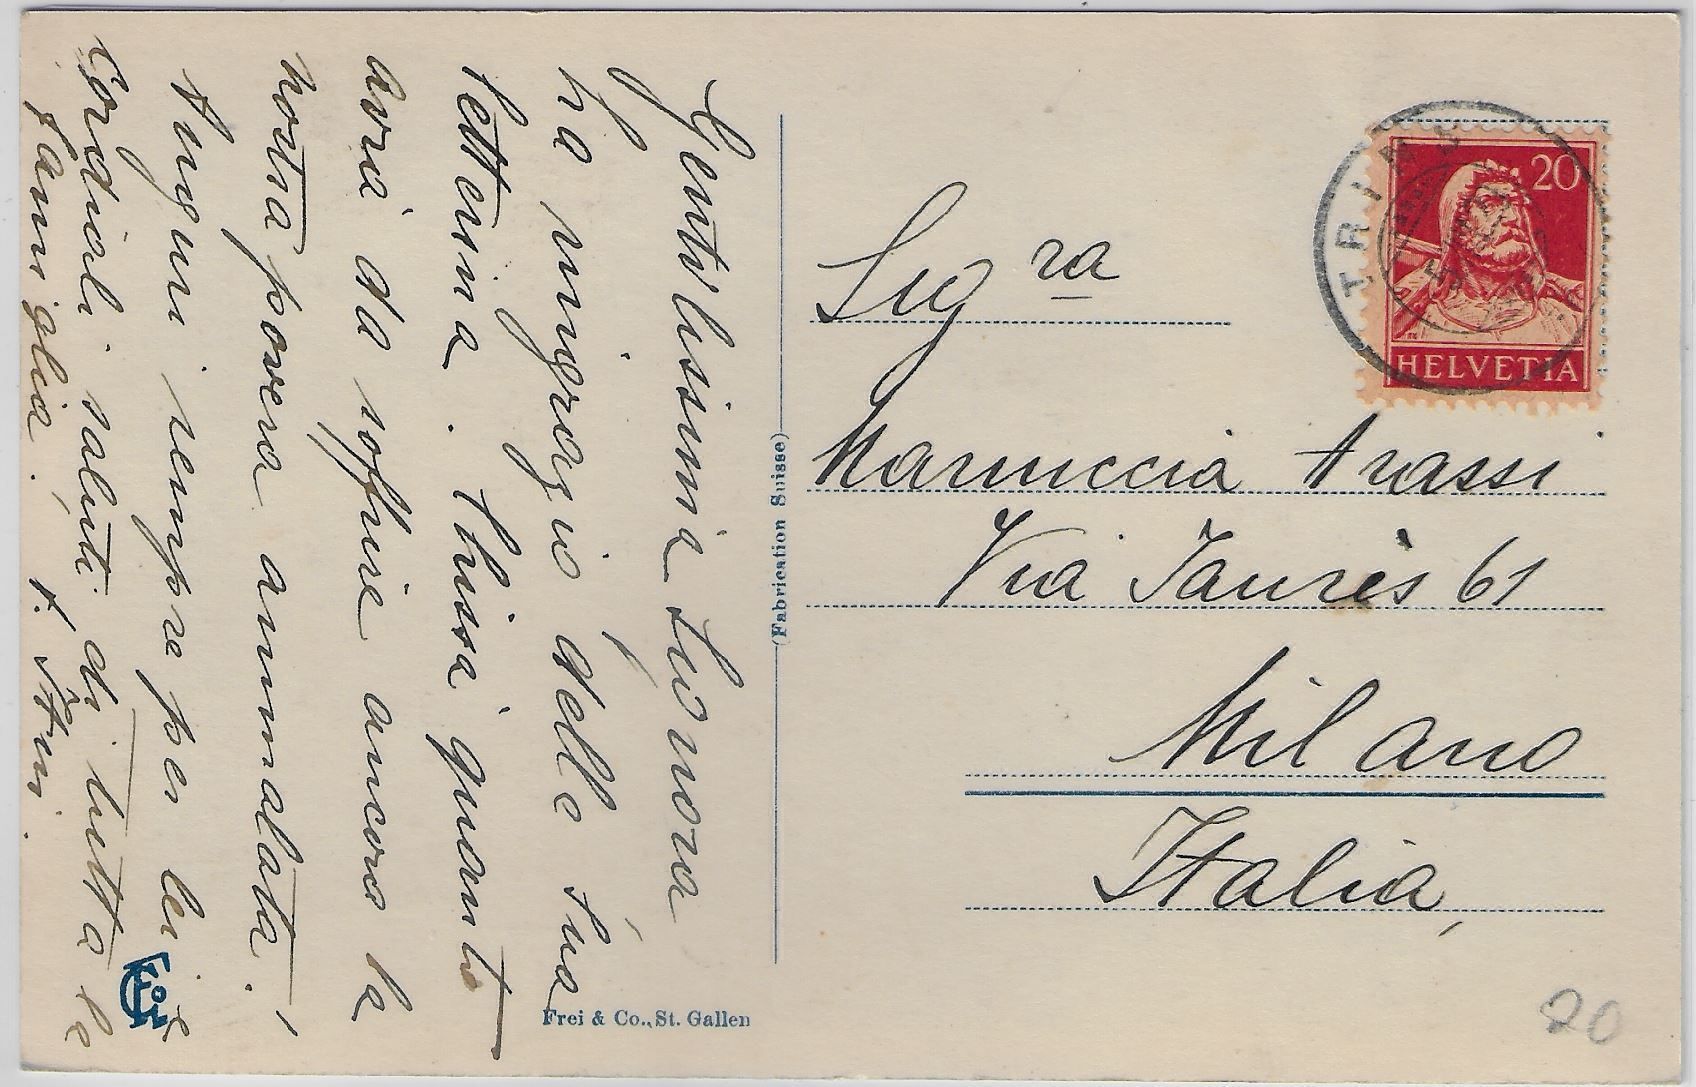 Gentilissima Signora
La ringrazio delle Sua
letterina. Chissà quanto
avrà da soffrire ancora la
nostra povera ammalata!
Auguri sempre per lei e
Cordiali saluti di tutta la
famiglia.
Frei & Co., St. Gallen
(Fabrication Suisse)
TRINS
20
HELVETIA
Sig ra
Mariuccia Arassi
Via Jaurès 61
Milano
Italia,
20